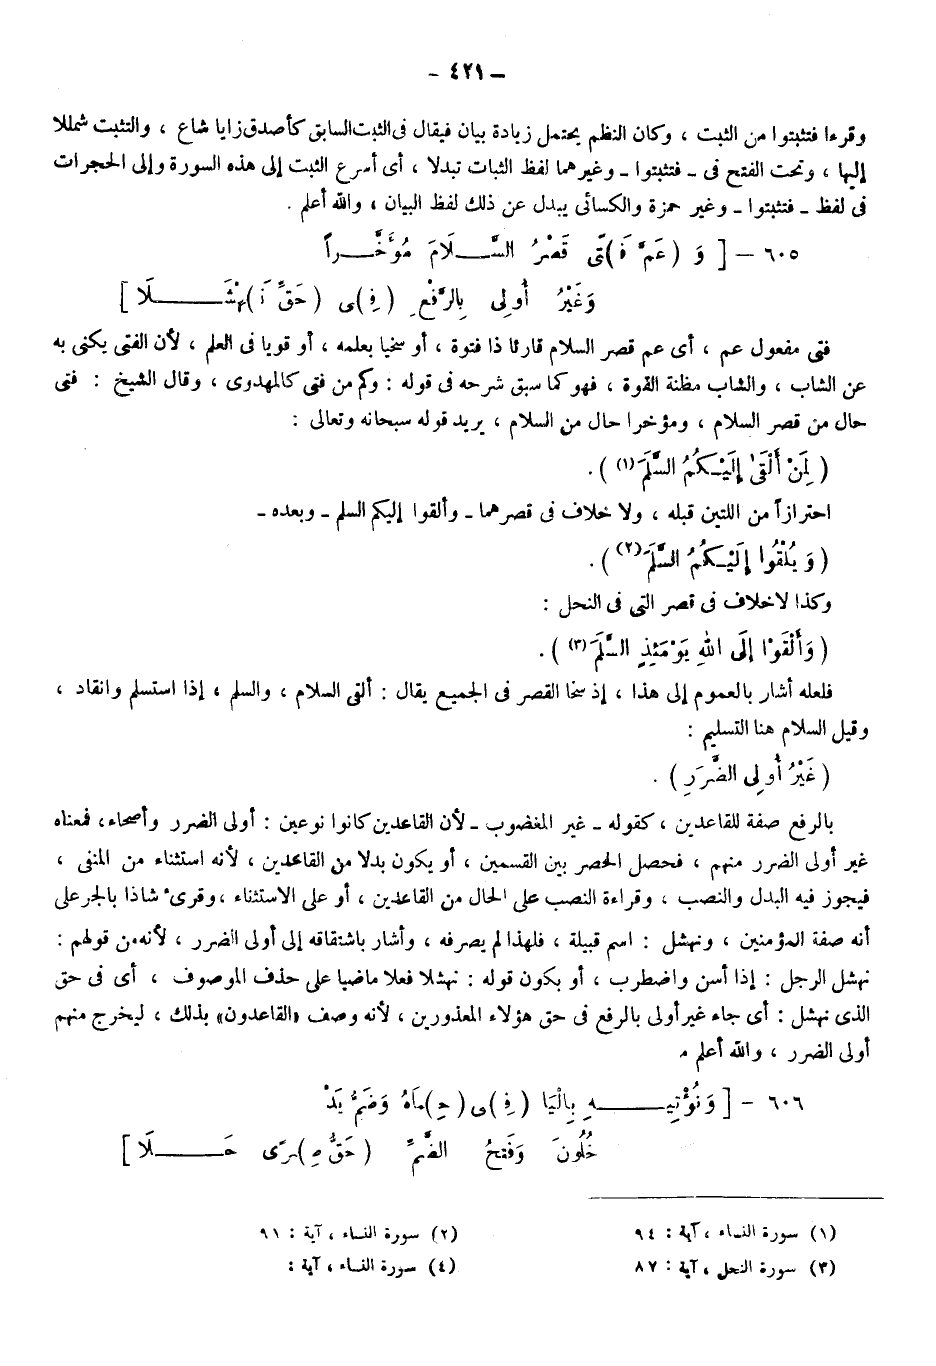 ـ ٤٢١ ـ
وقرءا فتثبتوا من الثبت ، وكان النظم يحتمل زيادة بيان فيقال فى الثبت السابق كأصدق زايا شاع ، والتثبت شمللا
إليها ، وتحت الفتح فى ـ فتثبتوا ـ وغيرهما لفظ الثبات تبدلا ، أى أسرع الثبت إلى هذه السورة وإلى الحجرات
فى لفظ ـ فتثبتوا ـ وغير حمزة والكسائى يبدل عن ذلك لفظ البيان ، والله أعلم .
٦٠٥ – [ وَ (عَمَّ فَ)تًى قَصْرُ السَّـلَامَ مُؤَخَّـراً
وَغَيْرُ أُولِى بِالرَّفْعِ (فِ)ى (حَقِّ نَ)هْشَـلَا ]
فتى مفعول عم ، أى عم قصر السلام قارئا ذا فتوة ، أو سخيا بعلمه ، أو قويا فى العلم ، لأن الفتى يكنى به
عن الشاب ، والشاب مظنة القوة ، فهو كما سبق شرحه فى قوله : وكم من فتى كالمهدوى ، وقال الشيخ : فتى
حال من قصر السلام ، ومؤخرا حال من السلام ، يريد قوله سبحانه وتعالى :
( لِمَنْ أَلْقَىٰ إِلَيْـكُمُ السَّلَمَ (١) ) .
احترازاً من اللتين قبله ، ولا خلاف فى قصرهما ـ وألقوا إليكم السلم ـ وبعده ـ
( وَ يُلْقُوا إِلَيْـكُمُ السَّلَمَ (٢) ) .
وكذا لاخلاف فى قصر التى فى النحل :
( وَأَلْقَوْا إِلَى اللهِ يَوْمَئِذٍ السَّلَمَ (٣) ) .
فلعله أشار بالعموم إلى هذا ، إذ سخا القصر فى الجميع يقال : ألقى السلام ، والسلم ، إذا استسلم وانقاد ،
وقيل السلام هنا التسليم :
( غَيْرُ أُولِى الضَّرَرِ ) .
بالرفع صفة للقاعدين ، كقوله ـ غير المغضوب ـ لأن القاعدين كانوا نوعين : أولى الضرر وأصحاء ، فمعناه
غير أولى الضرر منهم ، فحصل الحصر بين القسمين ، أو يكون بدلا من القاعدين ، لأنه استثناء من المنفى ،
فيجوز فيه البدل والنصب ، وقراءة النصب على الحال من القاعدين ، أو على الاستثناء ، وقرىء شاذا بالجر على
أنه صفة المؤمنين ، ونهشل : اسم قبيلة ، فلهذا لم يصرفه ، وأشار باشتقاقه إلى أولى الضرر ، لأنه من قولهم :
نهشل الرجل : إذا أسن واضطرب ، أو يكون قوله : نهشلا فعلا ماضيا على حذف الموصوف ، أى فى حق
الذى نهشل : أى جاء غير أولى بالرفع فى حق هؤلاء المعذورين ، لأنه وصف «القاعدون» بذلك ، ليخرج منهم
أولى الضرر ، والله أعلم .
٦٠٦ – [ وَنُؤْتِيـهِ بِالْيَا (فِ)ى (حِ)مَاهُ وَضَمُّ يَدْ
خُلُونَ وَفَتْحُ الضَّمِّ (حَقُّ صِ)رًى حَـلَا ]
(١) سورة النساء ، آية : ٩٤
(٢) سورة النساء ، آية : ٩١
(٣) سورة النحل ، آية : ٨٧
(٤) سورة النساء ، آية :